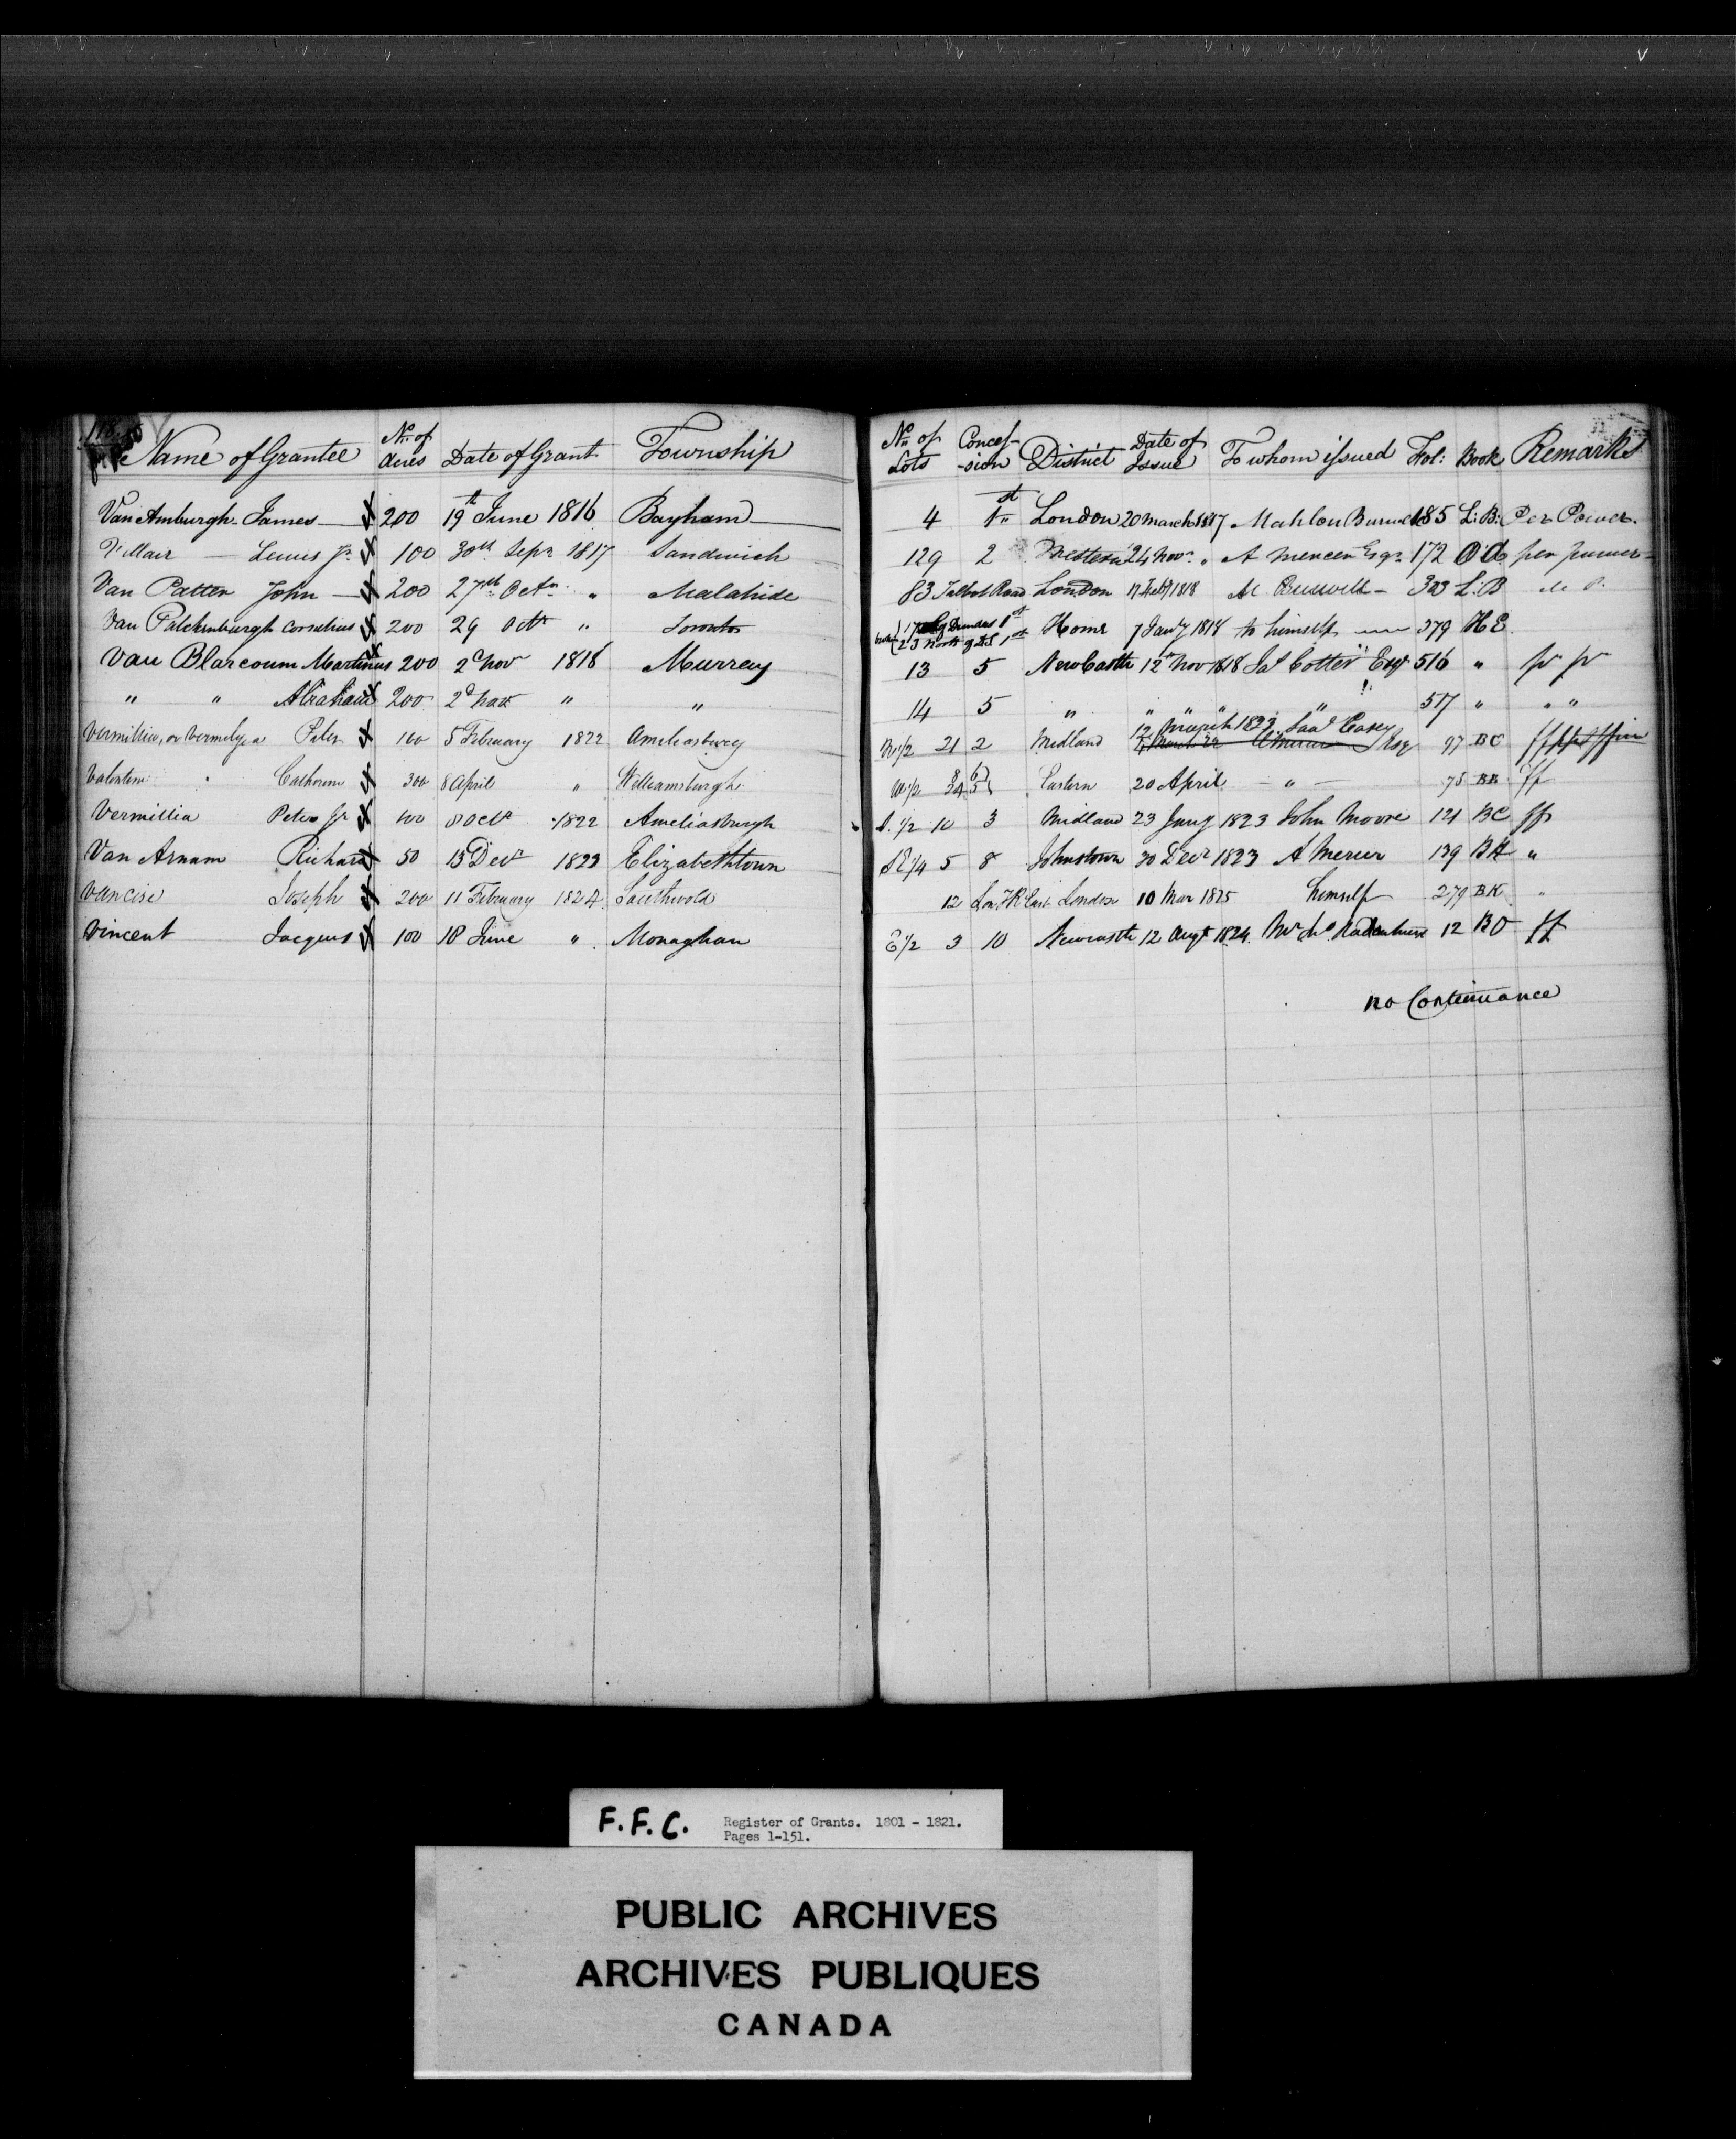 118
Name of Grantee Nº of Acres Date of Grant Township Nº of Lots Conces-sion District Date of Issue To whom issued Fol: Book Remarks
Van Amburgh James 200 19th June 1816 Bayham 4 1st London 20 March 1817 Mahlon Burwell 185 L:B: Per Power
Lewis Jr 100 30th Sepr 1817 Sandwich 129 2 Western 24 Novr " A Mercer Esqr 172 per power
Van Patter John 200 27th Octr " Malahide 83 Talbot Road London 17 Feby 1818 M Burwell 303 L.B
Van Palckenburgh Cornelius 200 29 Octr " Toronto 17 Dundas 1st
23 North of do 1st Home 7 Jany 1818 to himself 379 HE
Van Blarcoum Martinus 200 2d Nov 1818 Murray 13 5 NewCastle 12th Nov 1818 Jas Cotter Esqr 516 " pr pr
" " Abraham 200 2d Nov " " 14 5 " " " " " 517 " " "
Vermillia, or Vermilyea Peter 100 5 February 1822 Ameliasburg 21 2 Midland 12 March 1823 Saml Casey Esq 97 BC ff
Valentine Catherine 300 8 April " Williamsburgh W 1/2 8 6
34 5 Eastern 20 April " 78 BB ff
Vermillia Peter Jr 100 8 Octr 1822 Ameliasburgh S. 1/2 10 3 Midland 23 Jany 1823 John Moore 121 BC ff
Van Arnam Richard 50 13 Decr 1823 Elizabethtown SE 1/4 5 8 Johnstown 30 Decr 1823 A Mercer 139 BH "
Vancise Joseph 200 11 February 1824 Southwold 12 Lon. TR East London 10 Mar 1825 himself 279 BK "
Vincent Jacques 100 18 June " Monaghan E 1/2 3 10 Newcastle 12 Augt 1824 Mr Radenhurst 12 BO ff
no Continuance
F.F.C. Register of Grants. 1801 - 1821.
Pages 1-151.
PUBLIC ARCHIVES
ARCHIVES PUBLIQUES
CANADA